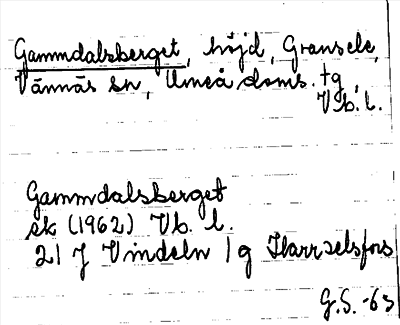 Gammdalsberget, höjd, Gransele,
Vännäs sn, Umeå doms. tg,
Vb. l.
Gammdalsberget
ek (1962) Vb. l.
21 J Vindeln 1g Harrselsfors
G.S. -63